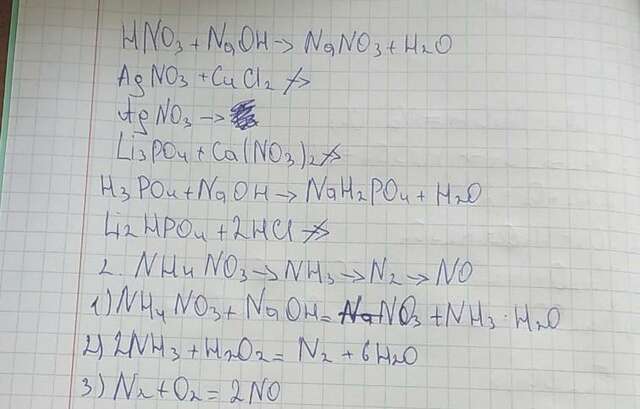 HNO3 + NaOH → NaNO3 + H2O
AgNO3 + CuCl2 ↛
AgNO3 →
Li3PO4 + Ca(NO3)2 ↛
H3PO4 + NaOH → NaH2PO4 + H2O
Li2HPO4 + 2HCl ↛
2. NH4NO3 → NH3 → N2 → NO
1) NH4NO3 + NaOH = NaNO3 + NH3·H2O
2) 2NH3 + H2O2 = N2 + 6H2O
3) N2 + O2 = 2NO